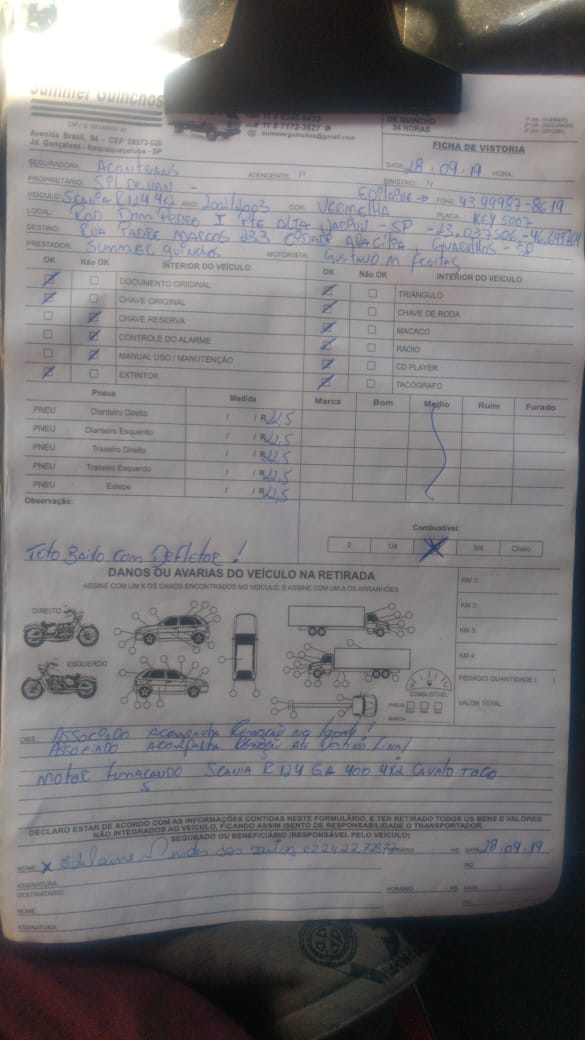 Summer Guinchos
Avenida Brasil, 94 - CEP 08573-020
Jd. Gonçalves - Itaquaquecetuba - SP
11 9 7172-3827
summerguinchos@gmail.com
DE GUINCHO
24 HORAS
FICHA DE VISTORIA
SEGURADORA: ATENDENTE: 11 DATA: 28.09.19 HORA:
PROPRIETÁRIO: SINISTRO: 11
VEÍCULO: SCANIA R124 4X2 ANO: 2002/2003 COR: VERMELHA FONE: 43 99987-8619
LOCAL: ROD DOM PEDRO I PLACA: KEY 5007
DESTINO: RUA PADRE MARCOS 233 CIDADE ARACILIA, GUARULHOS - SP
PRESTADOR: SUMMER GUINCHOS MOTORISTA: GUSTAVO M FREITAS
OK Não OK INTERIOR DO VEÍCULO OK Não OK INTERIOR DO VEÍCULO
DOCUMENTO ORIGINAL TRIÂNGULO
CHAVE ORIGINAL CHAVE DE RODA
CHAVE RESERVA MACACO
CONTROLE DO ALARME RÁDIO
MANUAL USO / MANUTENÇÃO CD PLAYER
EXTINTOR TACÓGRAFO
Pneus Medida Marca Bom Medio Ruim Furado
PNEU Dianteiro Direito / / R 22,5
PNEU Dianteiro Esquerdo / / R 22,5
PNEU Traseiro Direito / / R 22,5
PNEU Traseiro Esquerdo / / R 22,5
PNEU Estepe / / R 22,5
Observação:
Combustível:
0 1/4 3/4 Cheio
Teto Baixo com Defletor!
DANOS OU AVARIAS DO VEÍCULO NA RETIRADA
ASSINE COM UM X OS DANOS ENCONTRADOS NO VEÍCULO, E ASSINE COM UM A OS ARRANHÕES
KM 1:
KM 2:
KM 3:
KM 4:
DIREITO
ESQUERDO
COMBUSTÍVEL
PNEUS
MARCA
PEDÁGIO QUANTIDADE ( )
VALOR TOTAL
OBS.: ASSOCIADO ACOMPANHA Remoção no local!
ASSOCIADO ACOMPANHA Remoção até destino final!
MOTOR FUMAÇANDO SCANIA R 124 GA 400 4X2 CAVALO TOCO
S
DECLARO ESTAR DE ACORDO COM AS INFORMAÇÕES CONTIDAS NESTE FORMULÁRIO, E TER RETIRADO TODOS OS BENS E VALORES
NÃO INTEGRADOS AO VEÍCULO, FICANDO ASSIM ISENTO DE RESPONSABILIDADE O TRANSPORTADOR.
SEGURADO OU BENEFICIÁRIO (RESPONSÁVEL PELO VEÍCULO)
NOME: X dos santos HORÁRIO HS. DATA 28.09.19
ASSINATURA: RG
DESTINATÁRIO: HORÁRIO HS. DATA
NOME RG
ASSINATURA